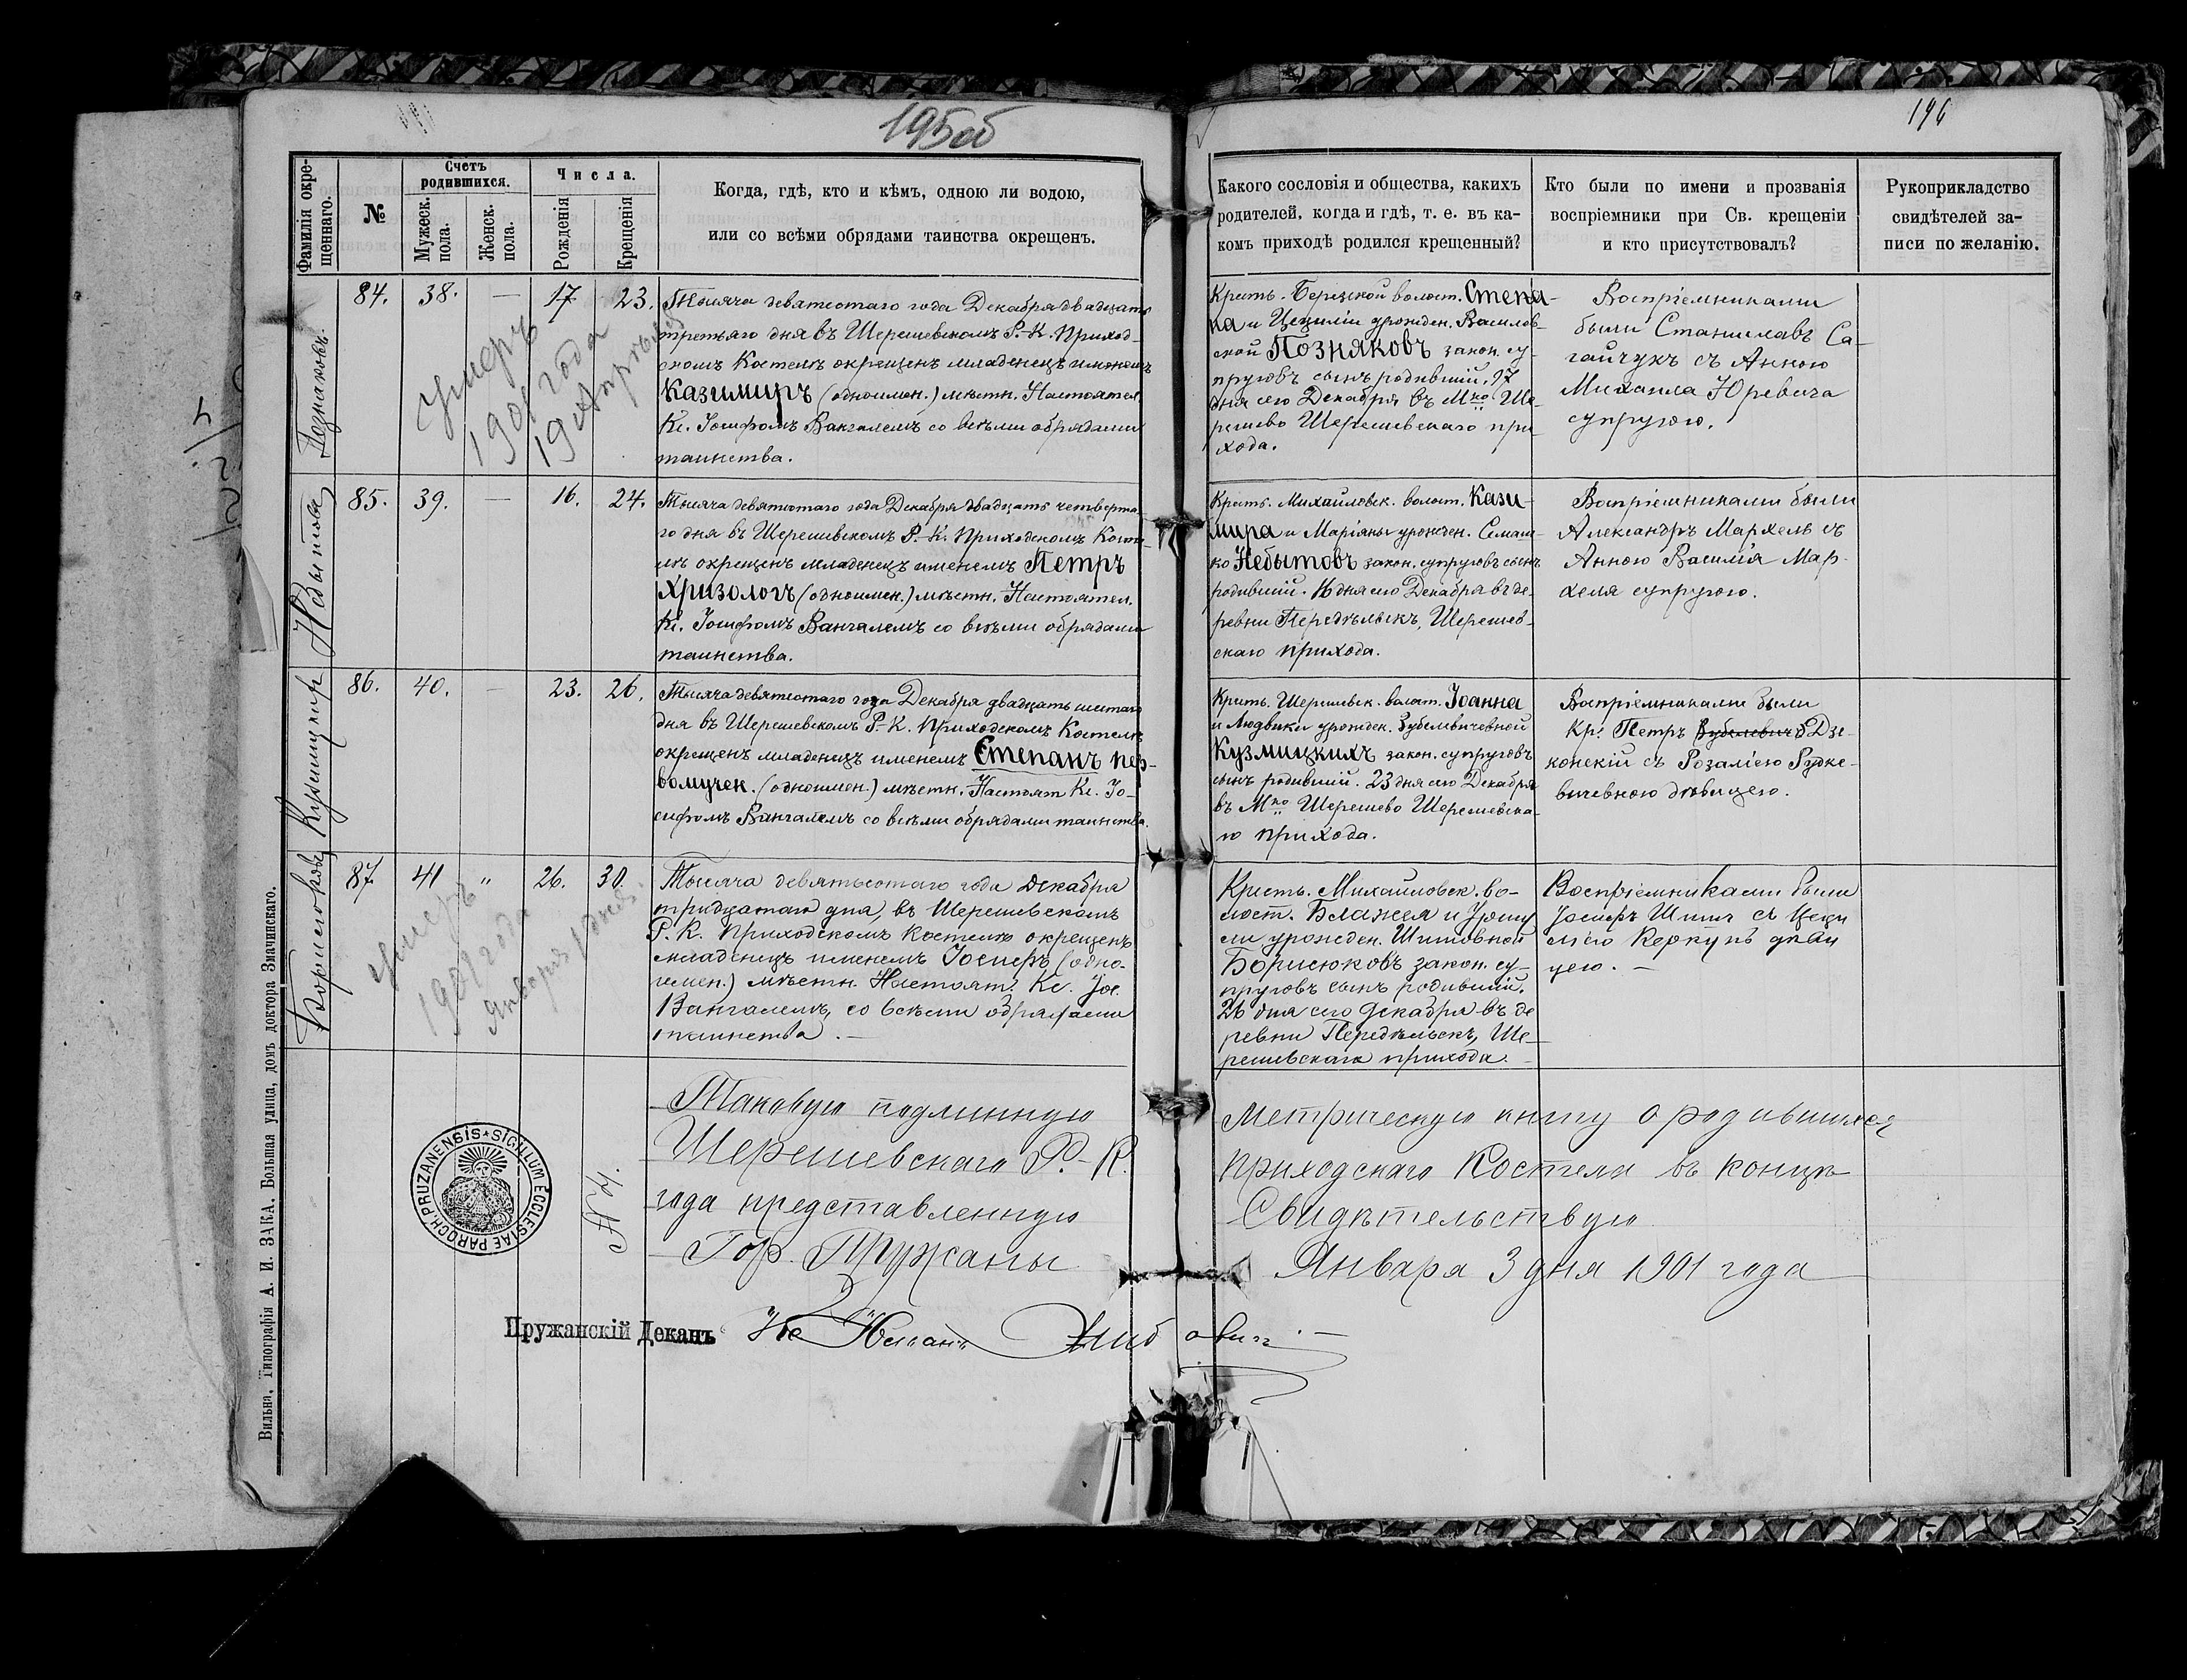 195об
196
Фамилія окре-
щеннаго.
№
Счетъ
родившихся.
Мужеск.
пола.
Женск.
пола.
Числа.
Рожденія
Крещенія
Когда, гдѣ, кто и кѣмъ, одною ли водою,
или со всѣми обрядами таинства окрещенъ.
Какого сословія и общества, какихъ
родителей, когда и гдѣ, т. е. въ ка-
комъ приходѣ родился крещенный?
Кто были по имени и прозванія
воспріемники при Св. крещеніи
и кто присутствовалъ?
Рукоприкладство
свидѣтелей за-
писи по желанію.
Позняковъ.
84. 38. — 17. 23.
умеръ
1901 года
19 Апрѣля
Тысяча девятсотаго года Декабря двадцать
третьяго дня въ Шерешевскомъ Р.-К. Приход-
скомъ Костелѣ окрещенъ младенецъ именемъ
Казимиръ (одноимен.) мѣстн. Настоятел.
Кс. Іосифомъ Вангалемъ со всѣми обрядами
таинства.
Крить. Березкой волост. Степа-
на и Цециліи урожден. Василев-
ской Позняковъ закон. су-
пруговъ сынъ родившій. 17
дня сего Декабря въ Мко Ше-
решево Шерешевскаго при-
хода.
Воспріемниками
были Станиславъ Са-
гайчукъ съ Анною
Михаила Юревича
супругою.
Небытовъ
85. 39. — 16. 24.
Тысяча девятсотаго года Декабря двадцать четверта-
го дня въ Шерешевскомъ Р.-К. Приходскомъ Косте-
лѣ окрещенъ младенецъ именемъ Петръ
Хризологъ (одноимен.) мѣстн. Настоятел.
Кс. Іосифомъ Вангалемъ со всѣми обрядами
таинства.
Крить. Михайловск. волост. Кази-
мира и Маріяны урожден. Семаш-
ко Небытовъ закон. супруговъ сынъ
родившій. 16 дня сего Декабря въ де-
ревни Передѣльскъ, Шерешев-
скаго прихода.
Воспріемниками были
Александръ Мархель съ
Анною Василія Мар-
хеля супругою.
86. 40. — 23. 26.
Тысяча девятсотаго года Декабря двадцать шестаго
дня въ Шерешевскомъ Р.-К. Приходскомъ Костелѣ
окрещенъ младенецъ именемъ Степанъ пер-
вомучен. (одноимен.) мѣстн. Настоят Кс. Іо-
сифомъ Вангалемъ со всѣми обрядами таинства.
Крить. Шерешевск. волост. Іоанна
и Людвики урожден. Зубелевичевной
Кузмицкихъ закон. супруговъ
сынъ родившій. 23 дня сего Декабря
въ Мко Шерешево Шерешевска-
го прихода.
Воспріемниками были
Кр. Петръ Дзе-
конскій съ Розаліею Рудке-
вичевною дѣвицею.
Борисюковъ
87. 41 „ 26. 30.
умеръ
1901 года
Января 1 дня
Тысяча девятьсотаго года Декабря
тридцатаго дня, въ Шерешевскомъ
Р. К. Приходскомъ Костелѣ окрещенъ
младенецъ именемъ Іосифъ (одно-
имен.) мѣстн. Настоят. Кс. Іос.
Вангалемъ, со всѣми обрядами
таинства. —
Крить. Михайловск. во-
лост. Блажея и Уршу
ли урожден. Шитовной
Борисюковъ закон. су-
пруговъ сынъ родившій.
26 дня сего Декабря въ де
ревни Передѣльскъ, Ше-
решевскаго прихода.
Воспріемниками были
Іосифъ Шитъ съ Цеци
ліею Керкунъ дѣви
цею. —
Таковую подлинную Метрическую книгу о родившихся
Шерешевскаго Р.-К. Приходскаго Костела въ концѣ
года представленную Свидѣтельствую
Гор. Пружаны Января 3 дня 1901 года
№ 4.
SIGILLUM ECCLESIAE PAROCH. PRUZANENSIS
Пружанскій Деканъ
Вильна, Типографія А. И. ЗАКА. Большая улица, домъ доктора Змачинскаго.